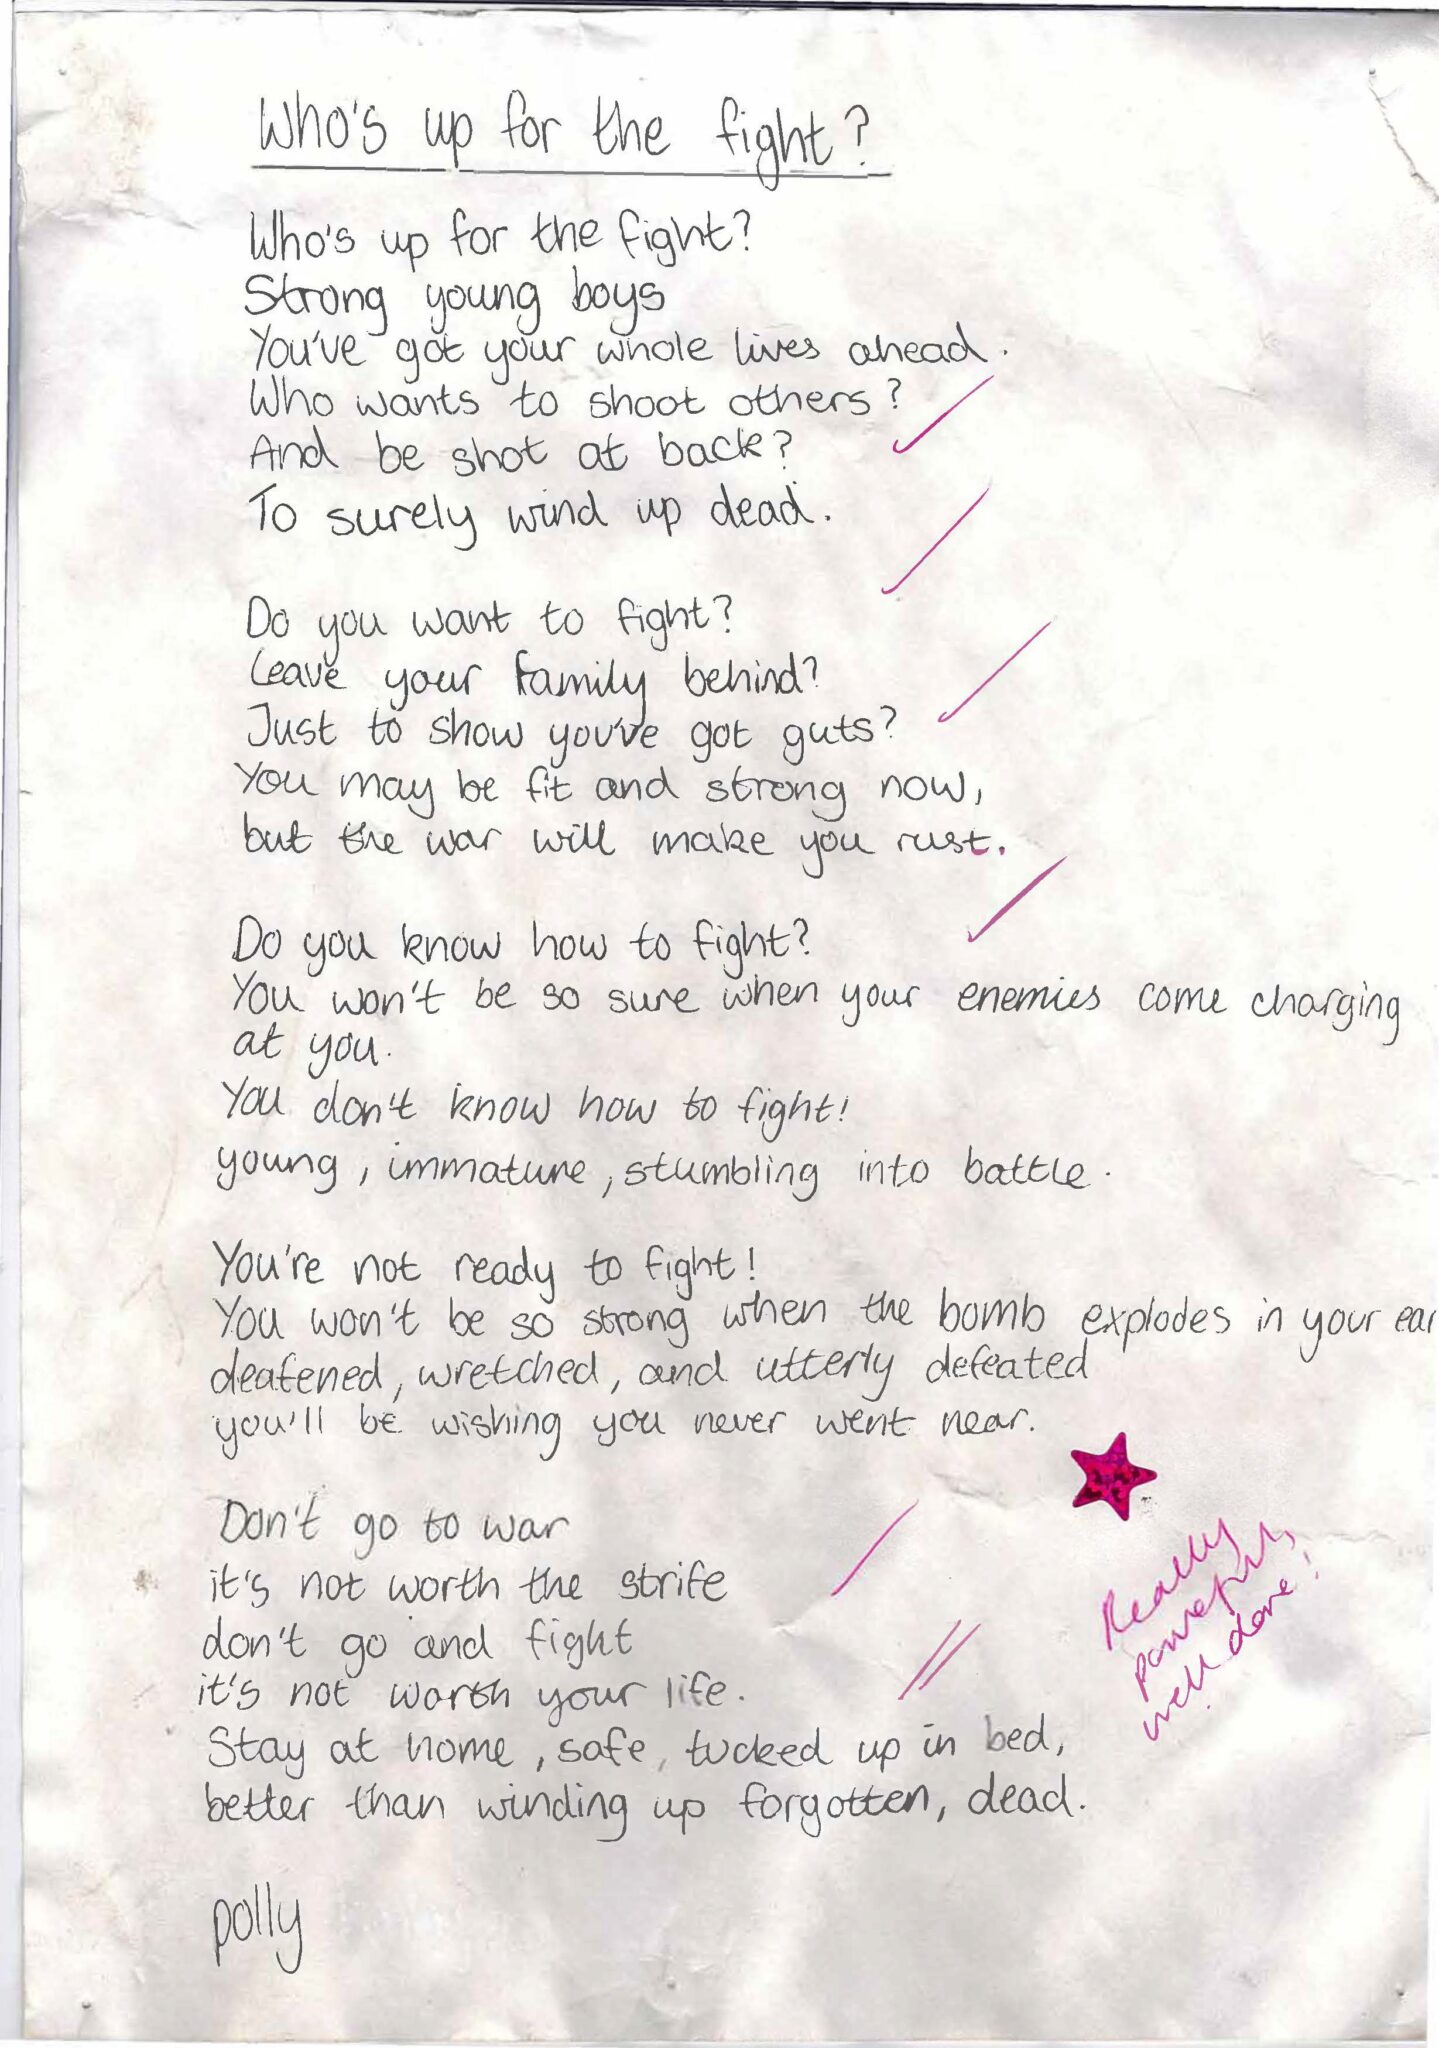 Who's up for the fight?
Who's up for the fight?
Strong young boys
You've got your whole lives ahead.
Who wants to shoot others?
And be shot at back?
To surely wind up dead.
Do you want to fight?
Leave your family behind?
Just to show you've got guts?
You may be fit and strong now,
but the war will make you rust.
Do you know how to fight?
You won't be so sure when your enemies come charging
at you.
You don't know how to fight!
young, immature, stumbling into battle.
You're not ready to fight!
You won't be so strong when the bomb explodes in your ear
deafened, wretched, and utterly defeated
you'll be wishing you never went near.
Don't go to war
it's not worth the strife
don't go and fight
it's not worth your life.
Stay at home, safe, tucked up in bed,
better than winding up forgotten, dead.
Really
powerful,
well done!
polly